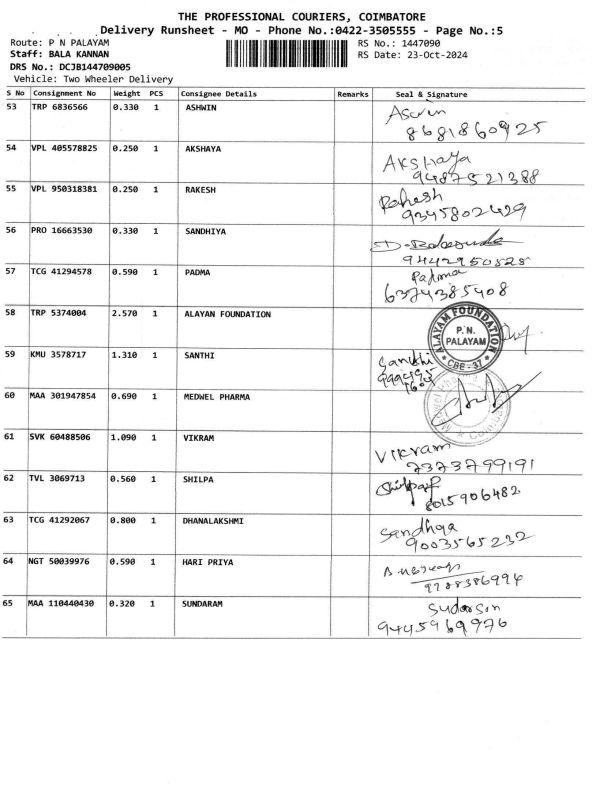 THE PROFESSIONAL COURIERS, COIMBATORE
Delivery Runsheet - MO - Phone No.:0422-3505555 - Page No.:5
Route: P N PALAYAM RS No.: 1447090
Staff: BALA KANNAN RS Date: 23-Oct-2024
DRS No.: DCJB144709005
Vehicle: Two Wheeler Delivery
S No Consignment No Weight PCS Consignee Details Remarks Seal & Signature
53 TRP 6836566 0.330 1 ASHWIN
8681860925
54 VPL 405578825 0.250 1 AKSHAYA AKSHAYA
9487521388
55 VPL 950318381 0.250 1 RAKESH Rakesh
9345802429
56 PRO 16663530 0.330 1 SANDHIYA
9442950828
57 TCG 41294578 0.590 1 PADMA Padma
6374385408
58 TRP 5374004 2.570 1 ALAYAN FOUNDATION ALAYAM FOUNDATION
P.N. PALAYAM
CBE-37
59 KMU 3578717 1.310 1 SANTHI Santhi
60 MAA 301947854 0.690 1 MEDWEL PHARMA
61 SVK 60488506 1.090 1 VIKRAM Vikram
7373799191
62 TVL 3069713 0.560 1 SHILPA
8015906482
63 TCG 41292067 0.800 1 DHANALAKSHMI Sandhya
9003565232
64 NGT 50039976 0.590 1 HARI PRIYA
65 MAA 110440430 0.320 1 SUNDARAM Sudarson
9445969976